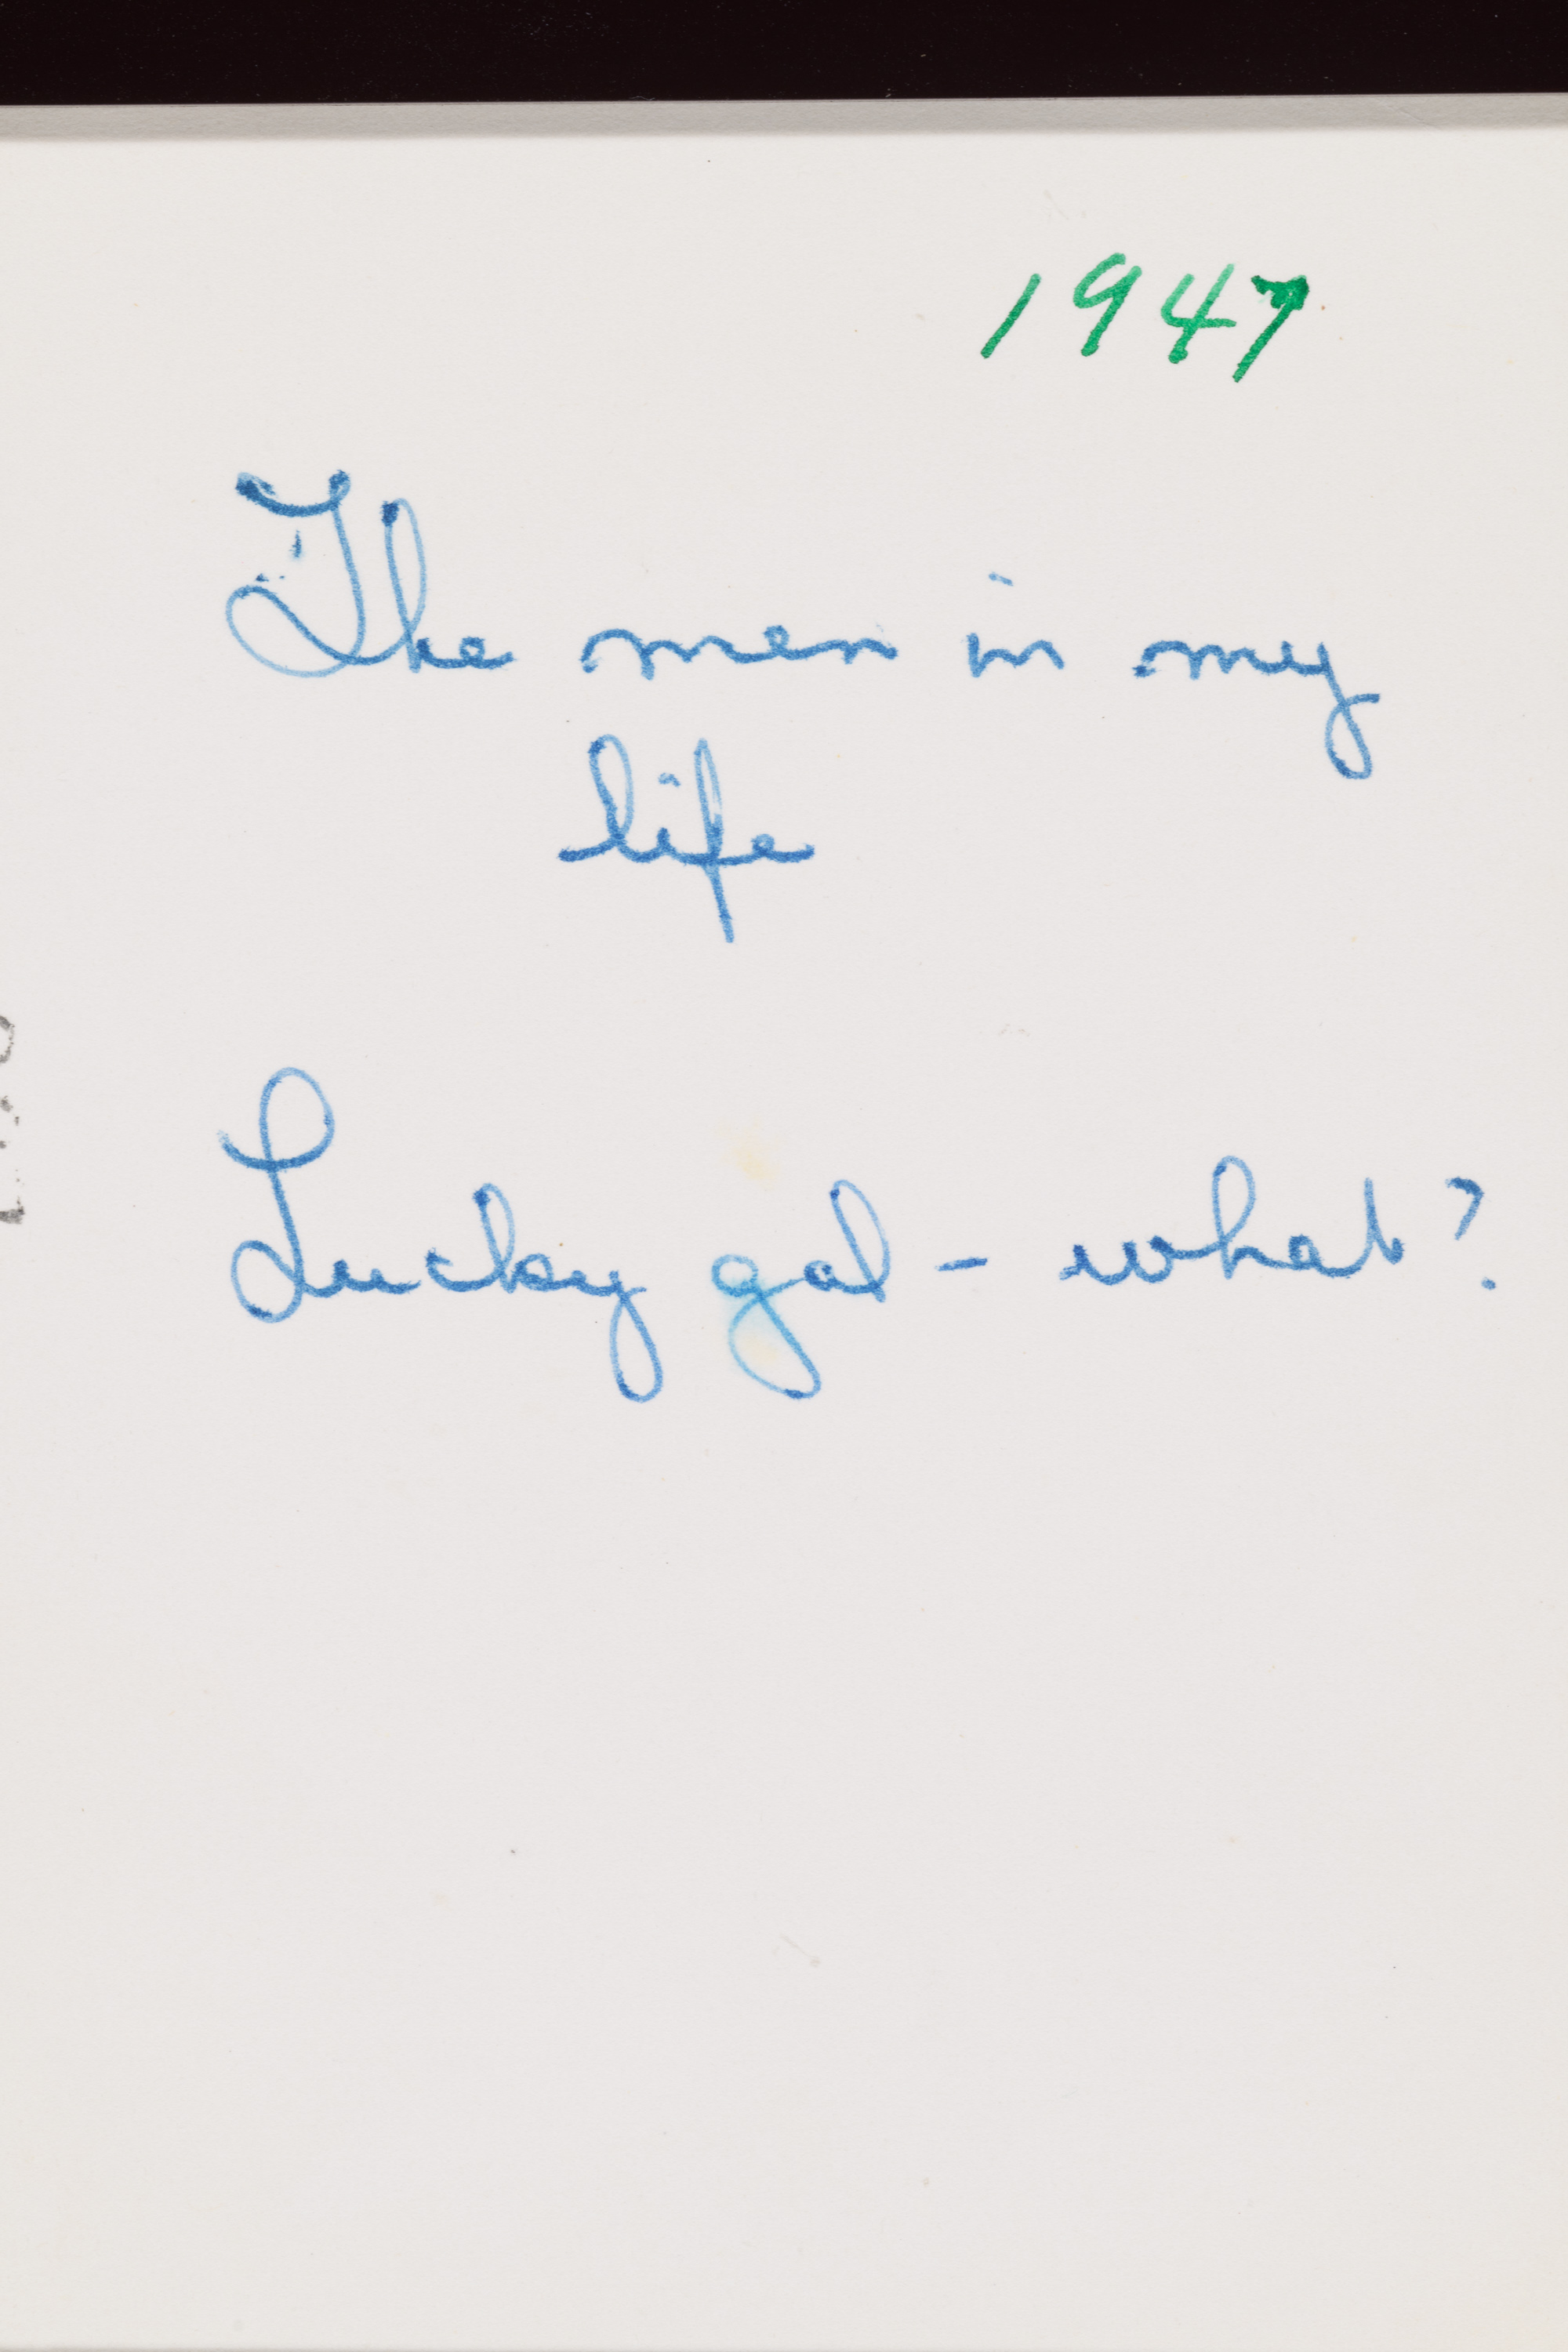 1947
The men in my
life
Lucky gal - what?